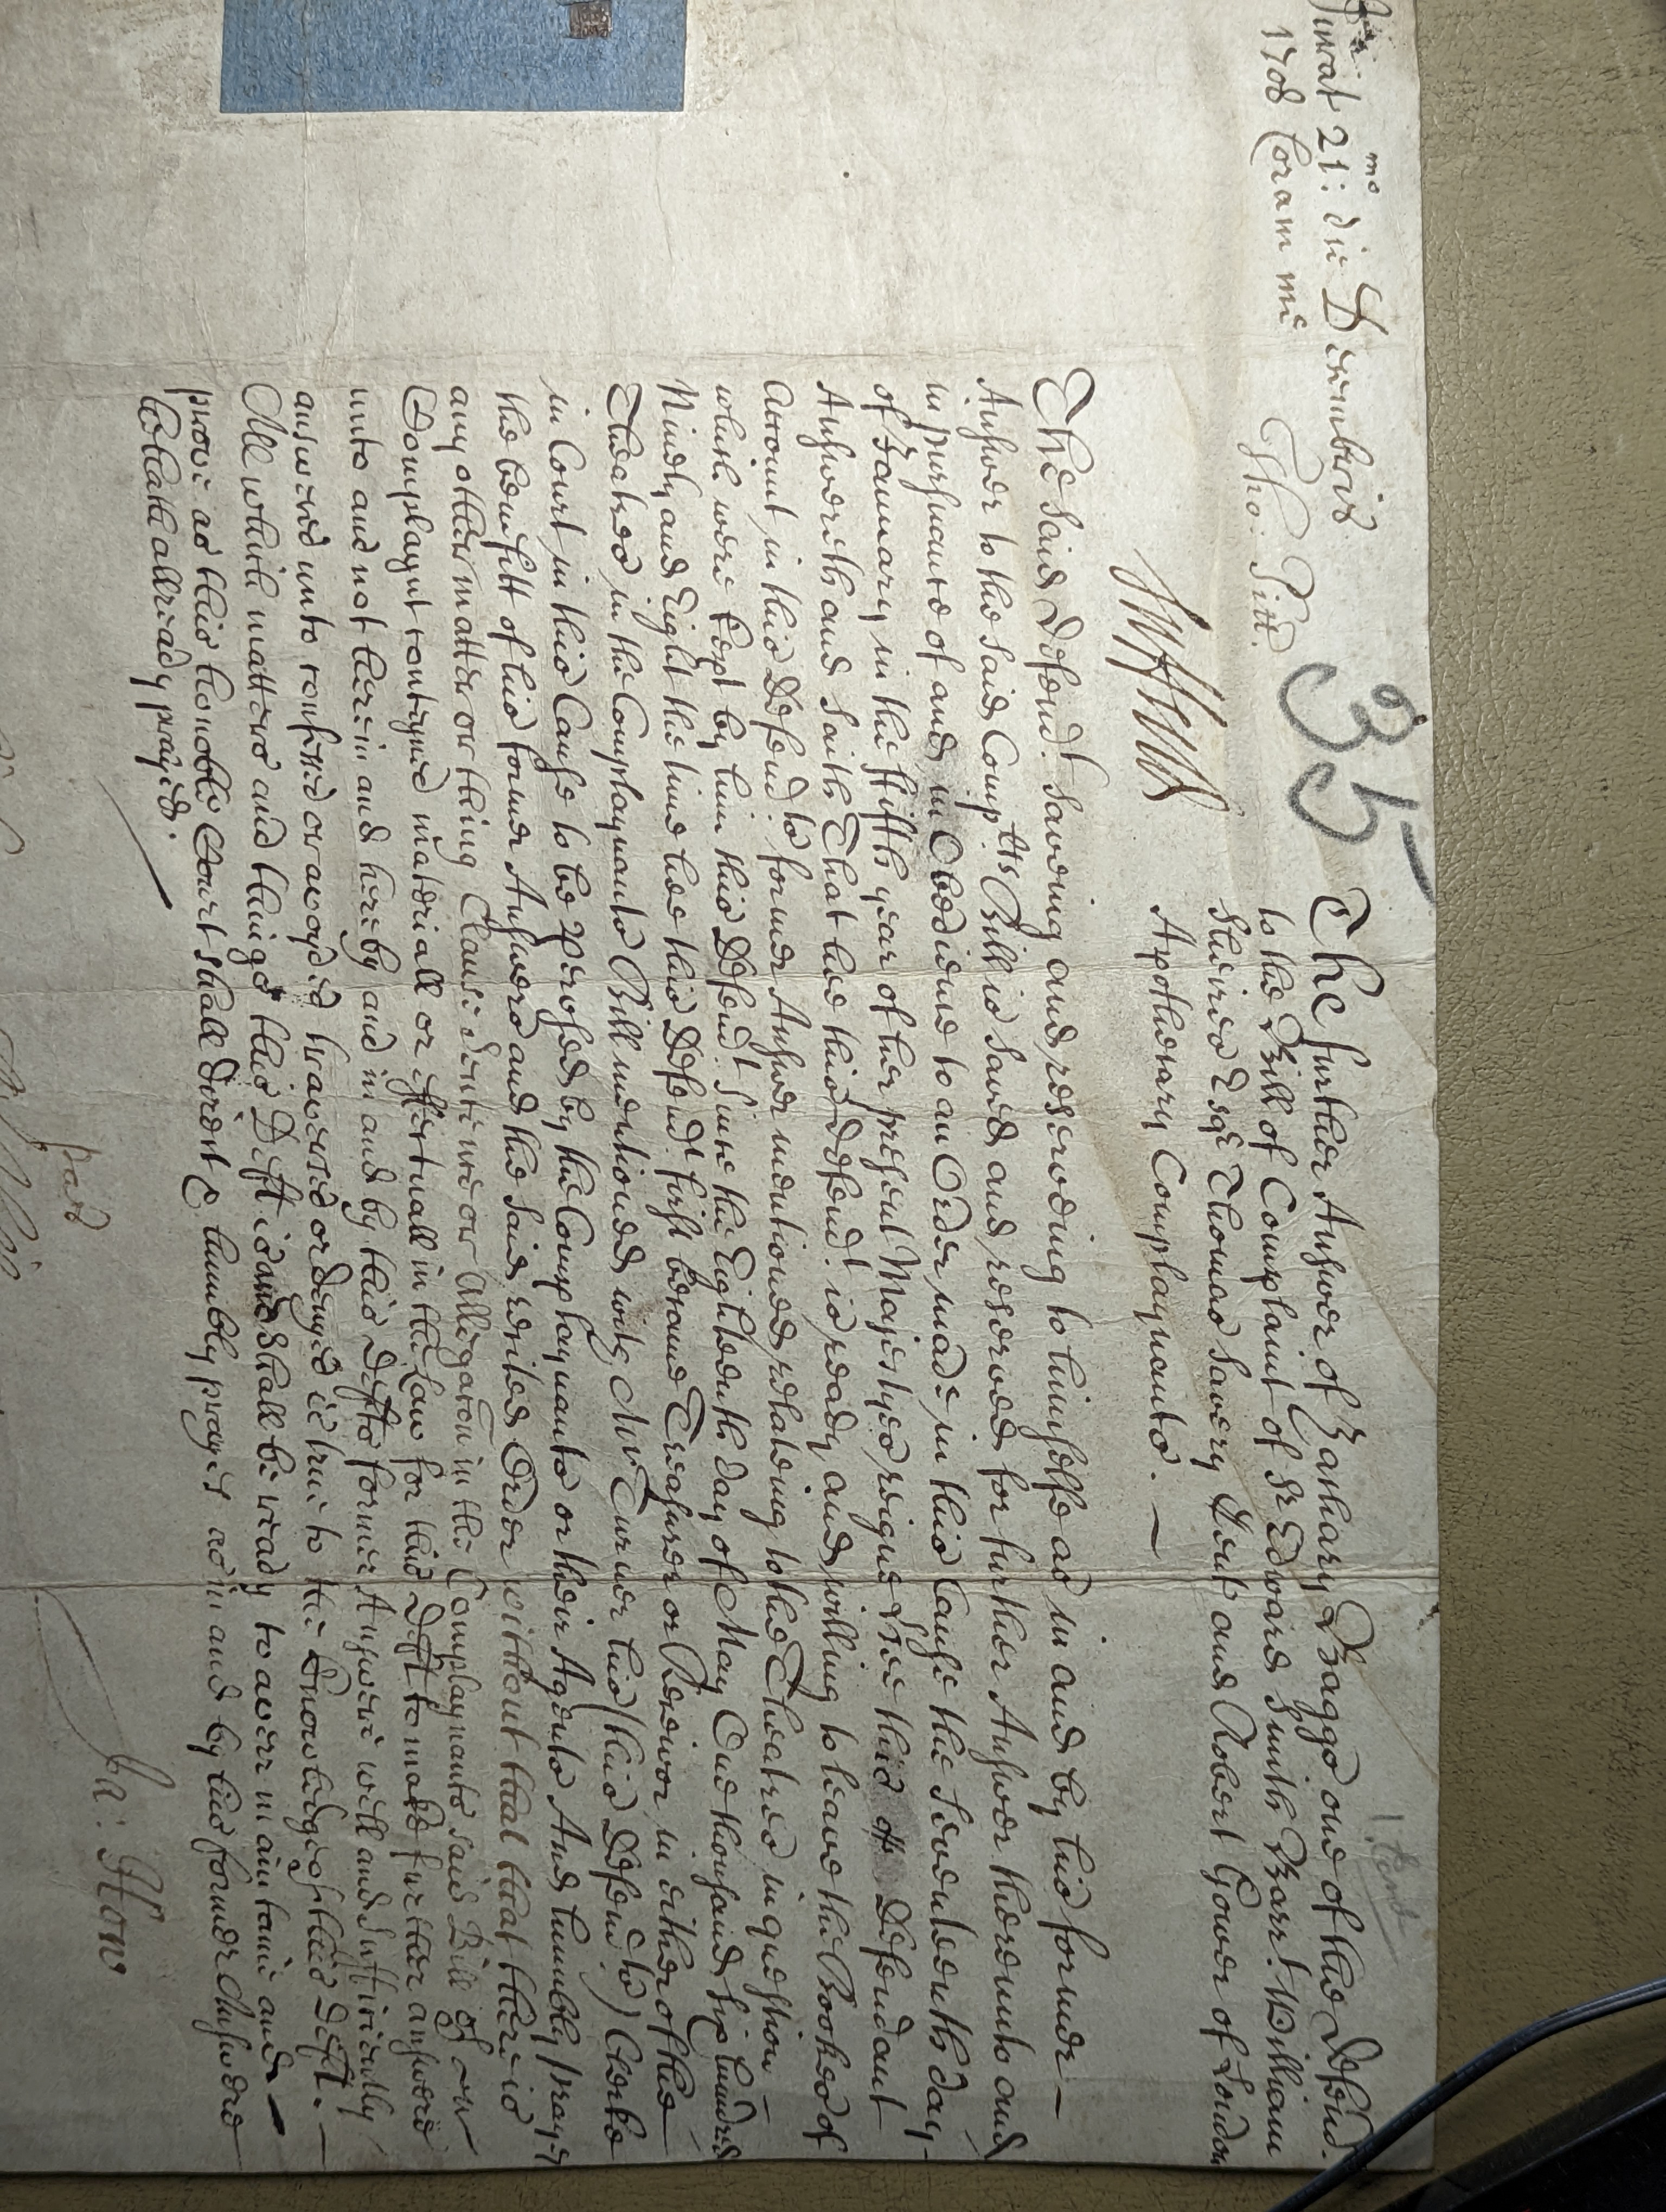 Jurat 21:mo die Decembris
1708 Coram me
Tho: Pitt.
35
1 Cont
The further Answer of Zachary Baggs one of the Defend.
to the Bill of Complaint of Sr. Edward Smith Barrt. William
Shiers Esqr. Thomas Savery Gent and Robert Gower of London
Apothecary Complaynants. —
The said Defend.t saveing and reserveing to himselfe as in and by his former —
Answer to the said Comp.lts Bill is saved and reserved for further Answer thereunto and
in pursuance of and in Obedience to an Order made in this Cause the Seventeenth day —
of January in the fifth year of her present Majestyes reigne Hee this Defendant
Answereth and saith That hee this Defend.t is ready and willing to leave the Bookes of
Account in this Defend.ts former Answer mentioned relateing to the Theatres in question —
which were kept by him this Defend.t since the Eighteenth day of May One thousand six hundred
Ninety and Eight the time hee this Defend.t first became Treasurer or Receivor in either of the —
Theatres in the Complaynants Bill mentioned with Mr Turner his (this Defend.ts) Clerke
in Court in this Cause to be perused by the Complaynants or their Agents And humbly prayes
the benefitt of his former Answers and the said recited Order without that that there is
any other matter or thing Clause Sentence or Allegacon in the Complaynants said Bill of
Complaynt conteyned materiall or effectuall in the Law for this Deft to make further answere
unto and not herein and hereby and in and by this Defts former Answere well and sufficiently
answered unto confessed or avoyded traversed or denyed is true to the knowledge of this Deft. —
All which matters and things this Deft is and shall be ready to averr maintaine and —
prove as this honoble Court shall direct & humbly prayes as in and by his former Answere —
he hath allready prayed.
Ja: How